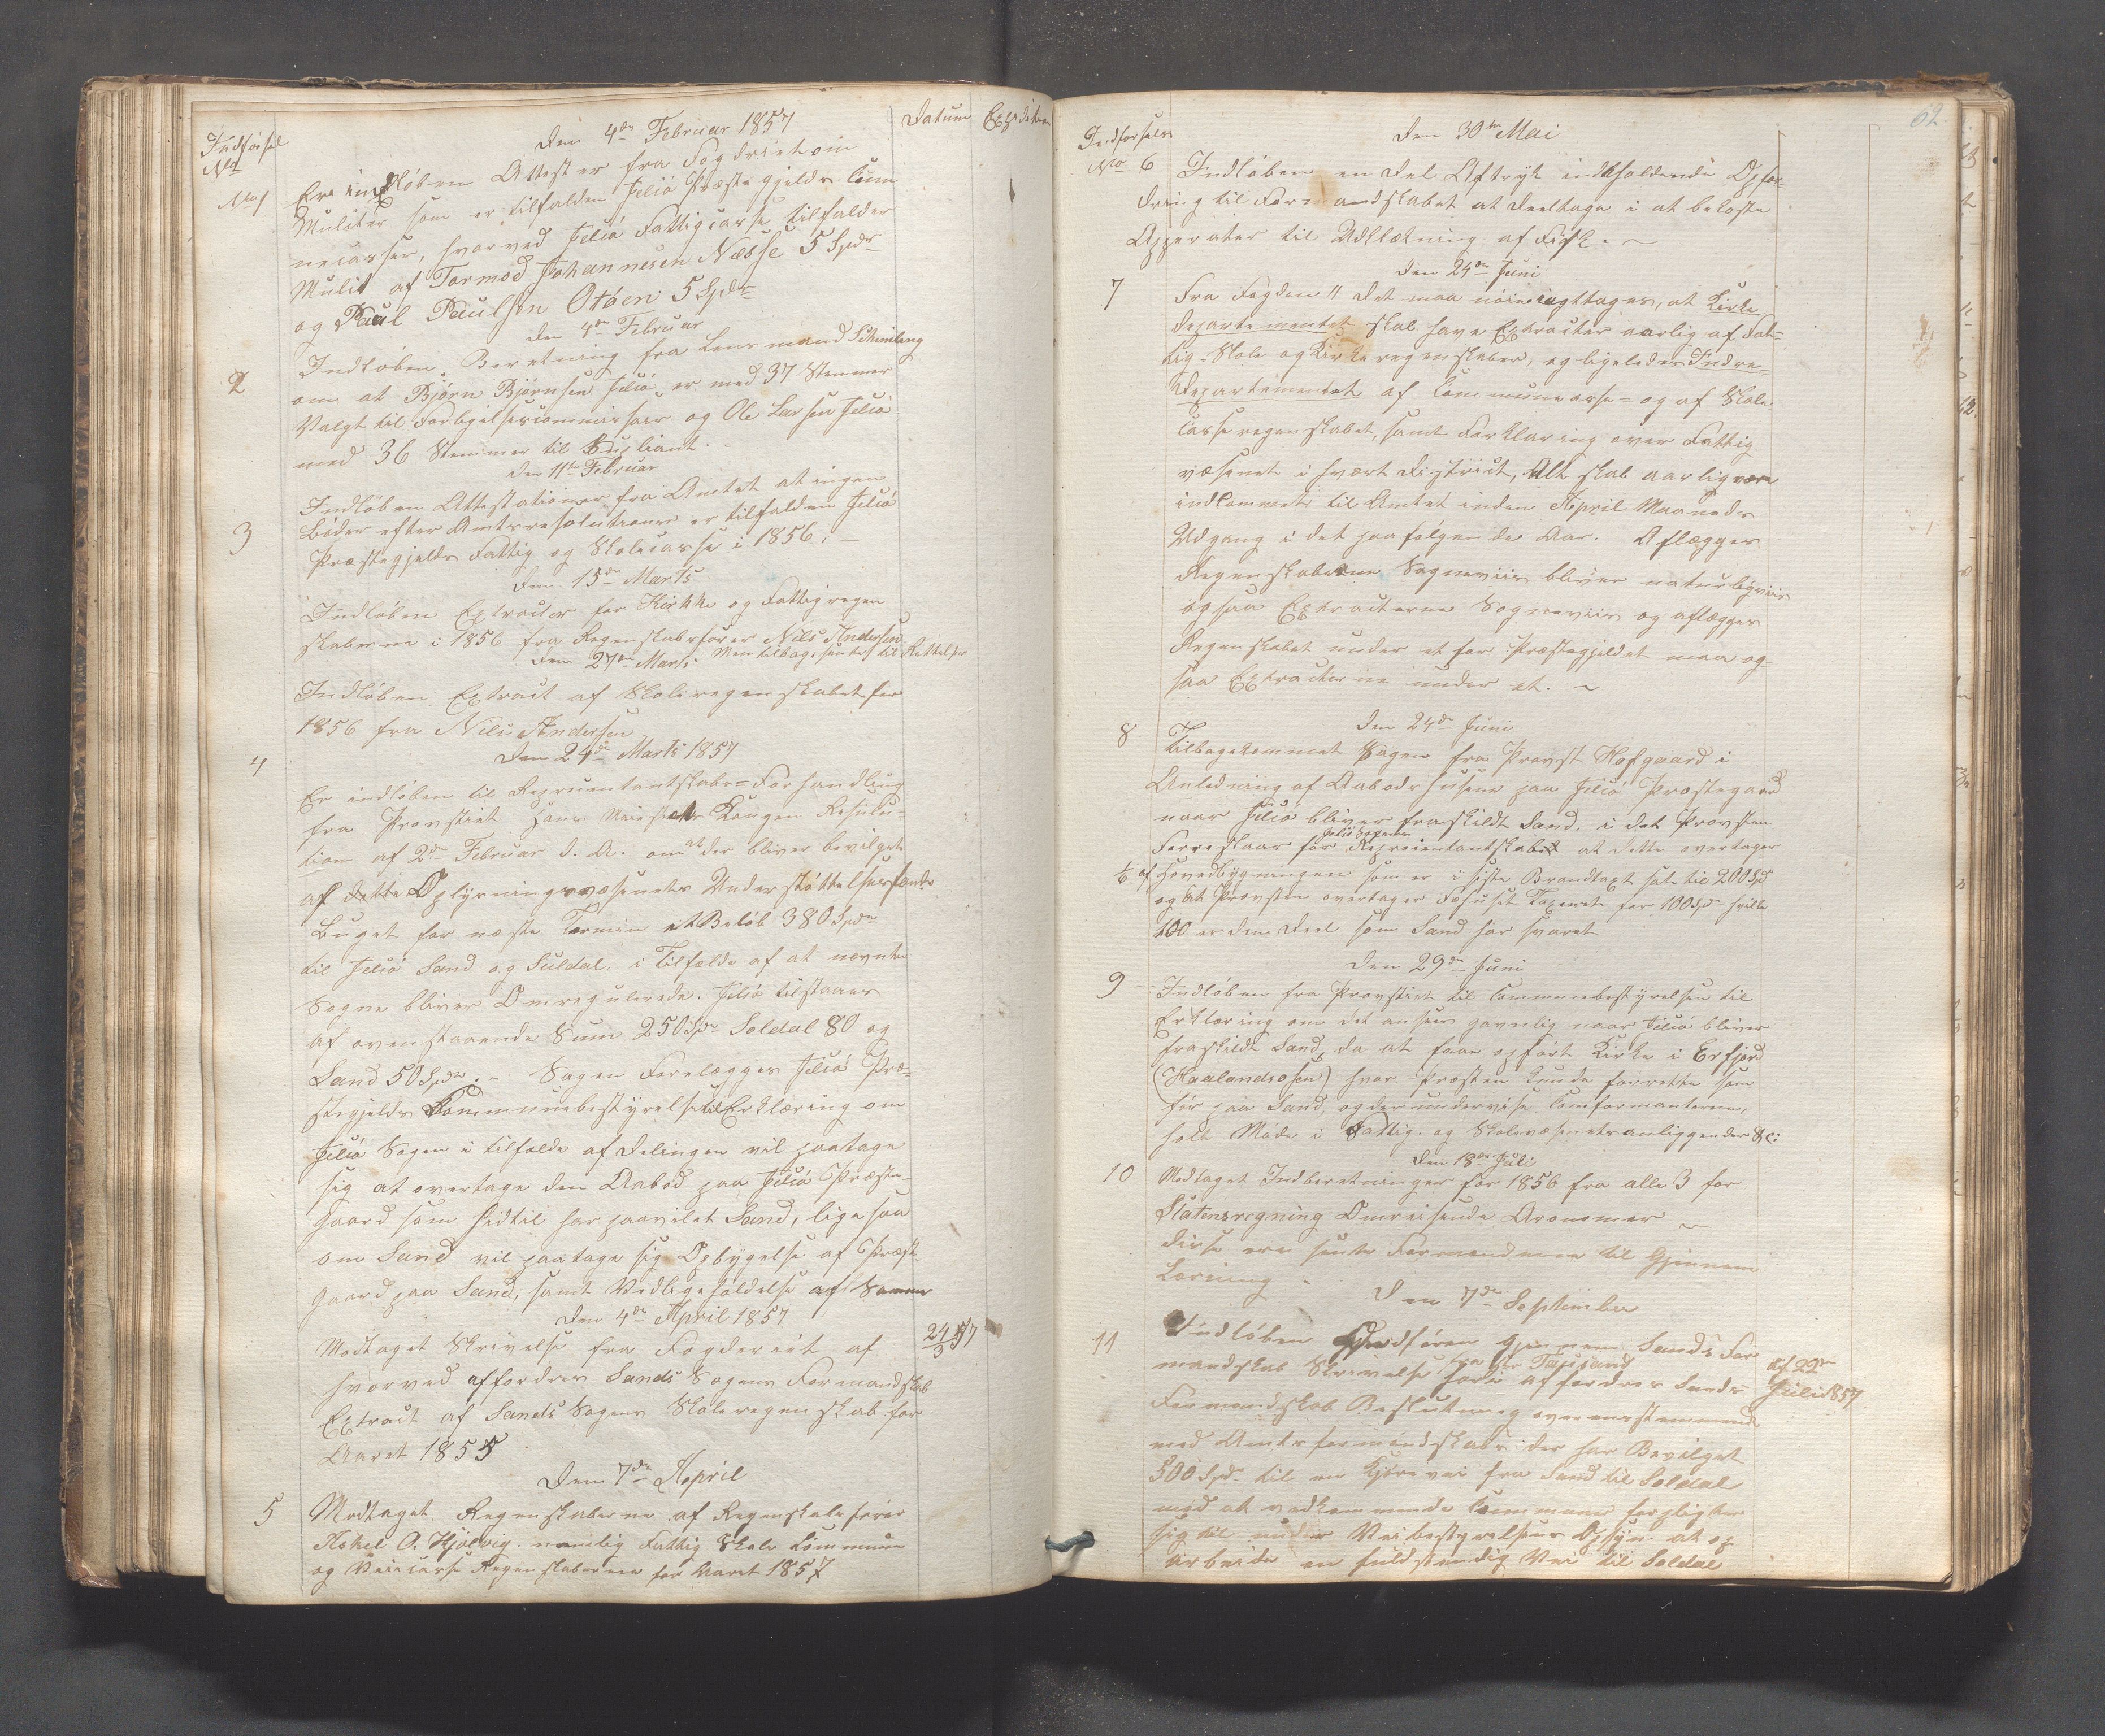 Indførsel
No
Datum Expedition
Den 4de Februar 1857
No 1 Er indløben Attester fra Fogdriet om
Mulkter som er tilfalden Jelsø Præstegjelds Com
necasser, hvorved Jelsø Fattigcasse tilfalder
Mulkt af Tormod Johannesen Næsse 5 Spdr
og Paul Paulsen Otøen 5 Spdr
Den 4de Februar
2 Indløben Beretning fra Lensmand
om at Bjørn Bjørnsen Jelsø er med 37 Stemmer
Valgt til Forligelsescommissær og Ole Larsen Jelsø
med 36 Stemmer til Supliant.
Den 11te Februar
3 Indløben Attestationer fra Amtet at ingen
Bøder efter Amtsresolutioner er tilfalden Jelsø
Præstegjelds Fattig og Skolecasse i 1856. –
Den 15de Marts
Indløben Extracter for Kirke og Fattigregen
skaberne i 1856 fra Regenskabsfører Nils Andersen
Men tilbagesendes til Rettelser
Den 27de Marts
Indløben Extract af Skoleregenskabet for
1856 fra Nils Andersen
Den 24de Marts 1857
4 Er indløben til Repræsentantskabs=Forhandling
fra Provstiet Hans Majestæts Kongens Resulu-
tion af 2de Februar d. A. om at der bliver bevilget
af dette Oplysningsvæsenets Understøttelsesfonds
Buget for næste Termin et Beløb 380 Spdr
til Jelsø Sand og Suldal, i Tilfælde af at nævnte
Sogne bliver Omregulerede. Jelsø tilstaaes
af ovenstaaende Sum 250 Spdr Soldal 80 og
Sand 50 Spdr. – Sagen Forelægges Jelsø Præ-
stegjelds Kommunebestyrelse til Erklæring om
Jelsø Sogn i tilfælde af Delingen vil paatage
sig at overtage den Aabod paa Jelsø Præste-
gaard som hidtil har paavilet Sand, ligesaa
om Sand vil paatage sig Opbygelse af Præst
gaard paa Sand, samt Vedligeholdelse af Samme
Den 4de April 1857
Modtaget Skrivelse fra Fogderiet af 24/3 57
hvorved affordres Sands Sogns Formandskab
Extract af Sands Sogns Skoleregenskab for
Aaret 1855
Den 7de April
5 Modtaget Regenskaberne af Regenskabsfører
Askel O. Hjølvig. nemlig Fattig Skole Commune
og Veicasse Regenskaberne for Aaret 1857
62
Indførsels
No 6
Den 30te Mai
Indløben en Del Aftryk indeholdende Opfor-
dring til Formandskabet at deeltage i at bekoste
Apperater til Udklækning af Fisk. –
Den 24de Juni
7 Fra Fogden " Det maa nøie iagttages, at Kirke
departementet skal have Extracter aarlig af Fat-
tig- Skole og Kirkeregenskaber, og ligeledes Indre-
Departementet af Communecasse= og af Skole
casseregenskabet, samt Forklaring over Fattig
væsenet i hvert District, Alt skal aarlig være
indkommet til Amtet inden April Maaneds
Udgang i det paafølgende Aar. Aflægges
Regenskaberne Sogneviis bliver naturligviis
ogsaa Extracterne Sogneviis og aflægges
Regenskabet under et for Præstegjeldet maa og-
saa Extracterne under et. –
Den 24de Juni
8 Tilbagekommet Sagen fra Provst Hofgaard i
Anledning af Aabodshusene paa Jelsø Præstegaard
naar Jelsø bliver fraskildt Sand, i det Provsten
Foreslaar for Jelsø Sogns Repræsentantskabet at dette overtager
1/6 af Hovedbygningen som er i siste Brandtaxt sat til 200 Spd
og at Provsten overtager for 100 Spd hvilke
100 er den Deel som Sand har svaret
Den 29de Juni
9 Indløben fra Provstiet til Communebestyrelsen til
Erklæring om det ansees gavnlig naar Jelsø bliver
fraskildt Sand, da at faa opført Kirke i Erfjord
(Haalandsosen) hvor Præsten kunde forrette som
før paa Sand, og der undervise Comfermanterne,
holde Møde i Fattig. og Skolevæsenets anliggender &c:
Den 18de Juli
10 Modtaget Indberetninger for 1856 fra alle 3 for
Statensregning Omreisende Agronomer –
disse ere sendte Formendene til Gjennem
Læsning –
Den 7de September
11 Indløben Gjennem Sands For
mandskab Skrivelse fra Hr Tausand af 22de
hori affordres Sands Juli 1857
Formandskab Beslutning overensstemmende
med Amtsformandskabs: der har Bevilget
500 Spd. til en Kjørevei fra Sand til Soldal
med at vedkommende Commune forpligter
sig til under Veibestyrelsens Opsyn at op
arbeide en fuldstendig Vei til Soldal